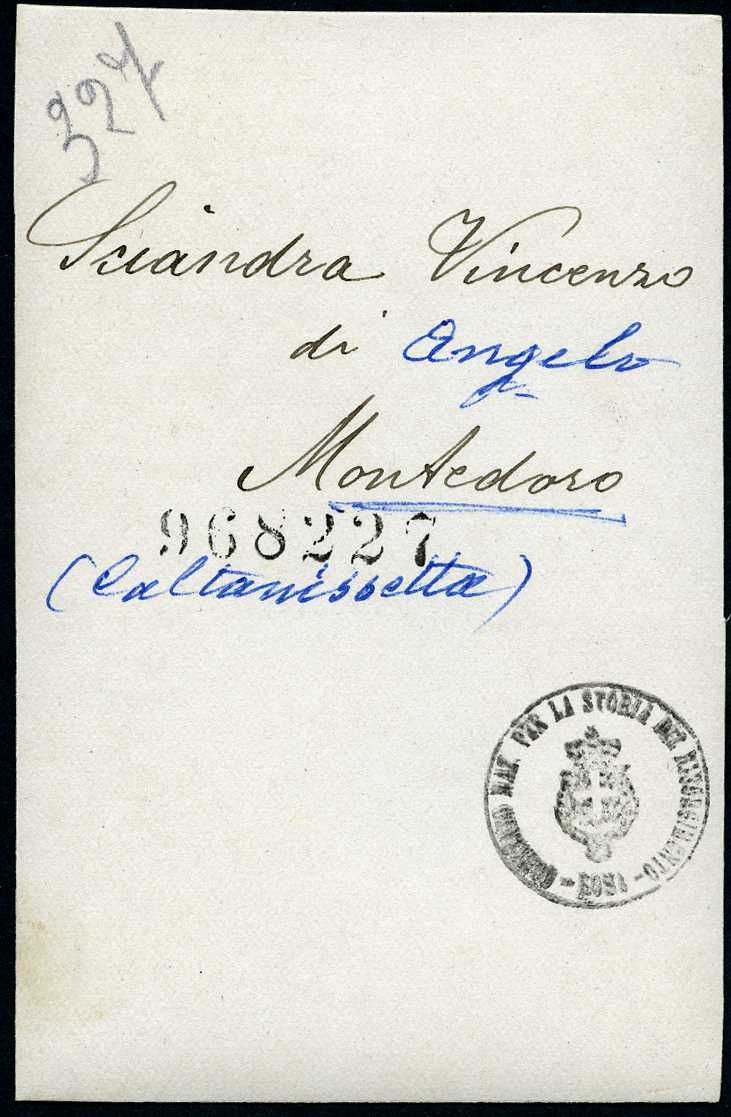 327
Sciandra Vincenzo
di Angelo
Montedoro
968227
(Caltanissetta)
COMITATO NAZ. PER LA STORIA DEL RISORGIMENTO
- ROMA -